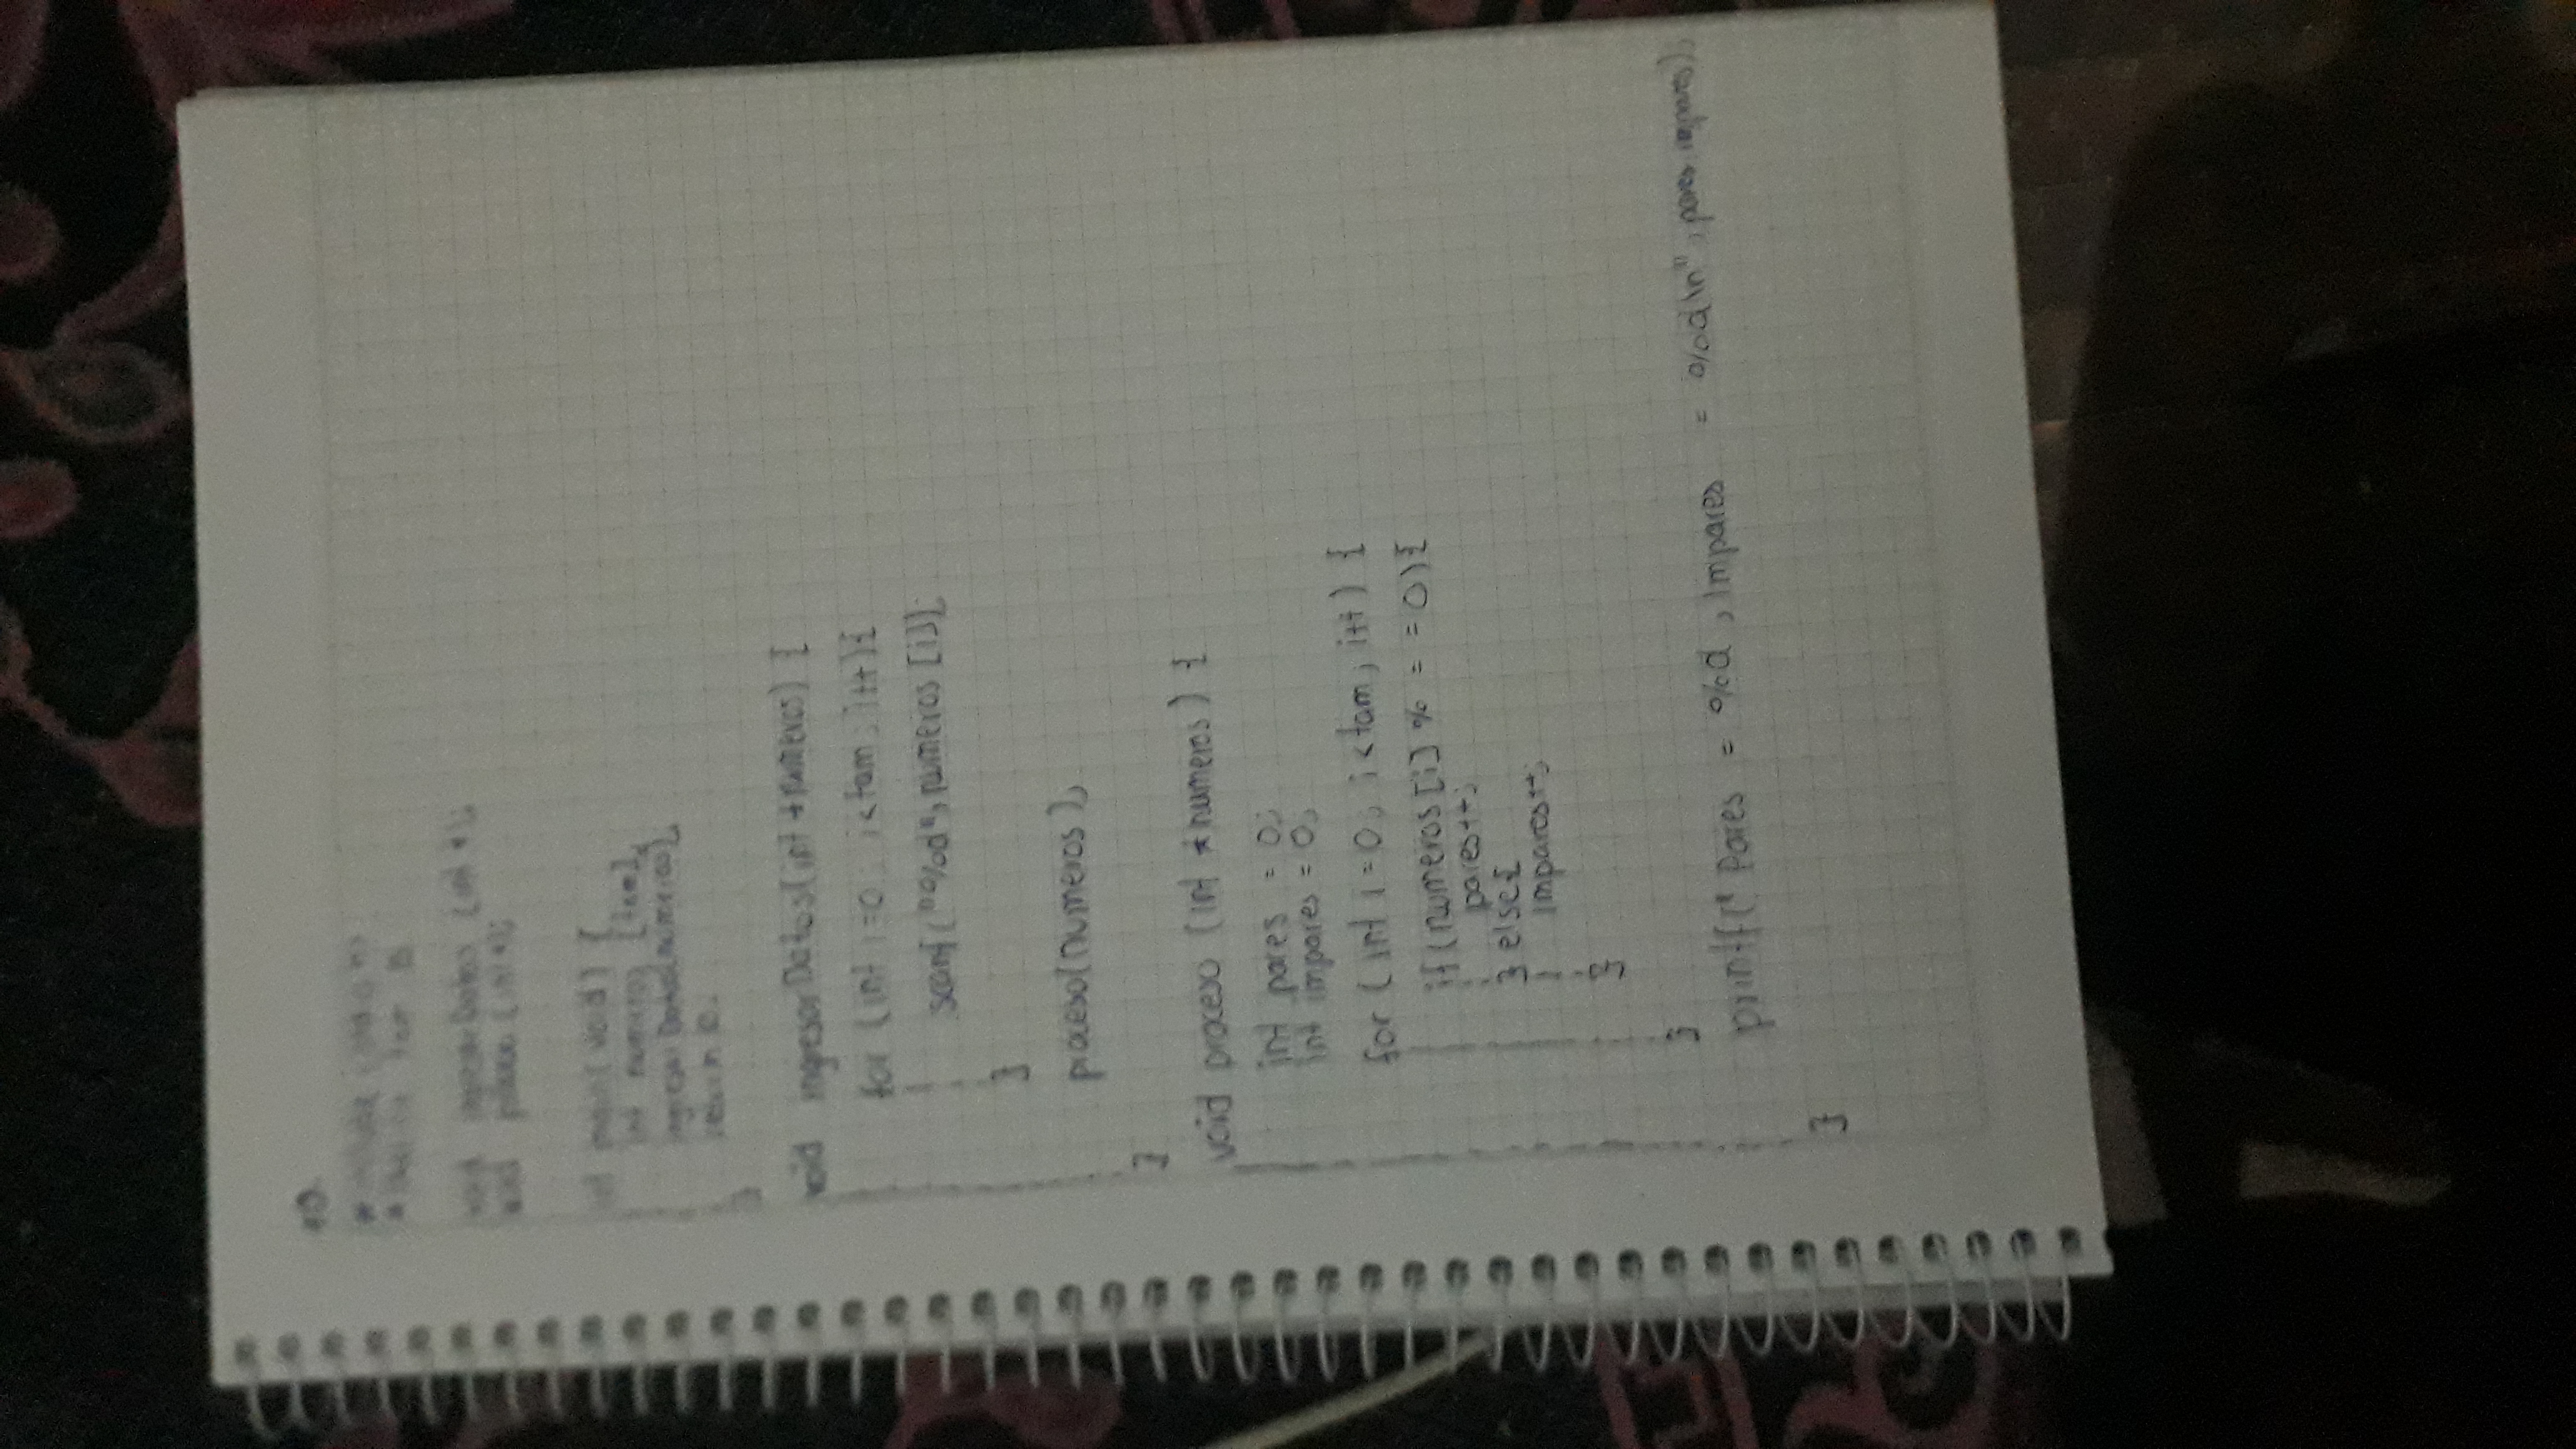 void ingresarDatos (int *);
void proceso (int *);
int main(void) {
int numeros [tam];
ingresarDatos(numeros);
return 0;
}
void ingresarDatos(int *numeros) {
for (int i=0; i<tam; i++){
scanf("%d", numeros [i]);
}
proceso(numeros);
}
void proceso (int *numeros) {
int pares = 0;
int impares = 0;
for (int i=0; i<tam; i++) {
if (numeros[i] % = = 0){
pares++;
} else{
impares++;
}
}
printf(" Pares = %d, Impares = %d\n", pares, impares);
}